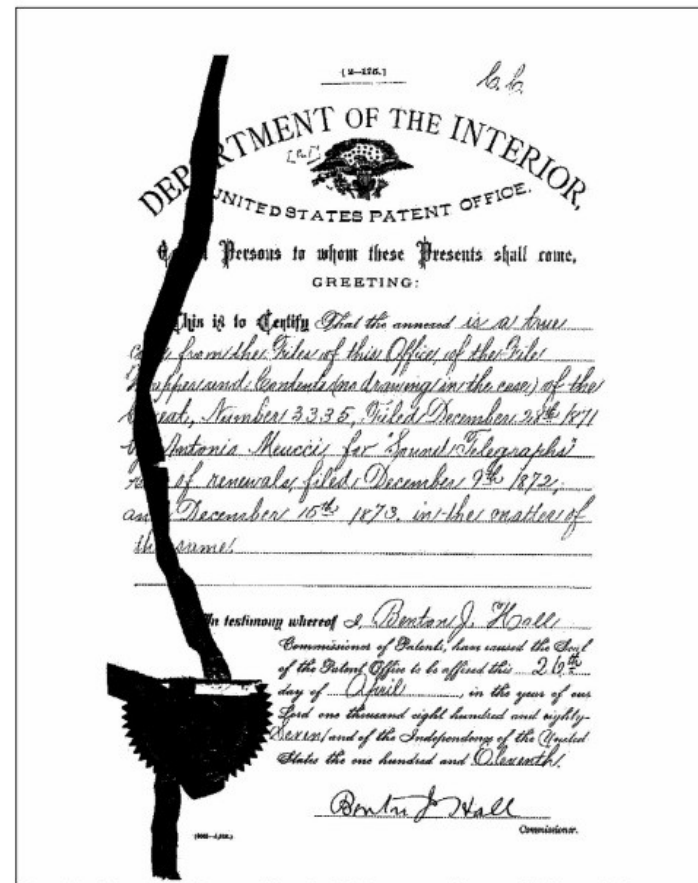 [2—175.]
DEPARTMENT OF THE INTERIOR,
UNITED STATES PATENT OFFICE.
Persons to whom these Presents shall come,
GREETING:
This is to Certify That the annexed is a true
from the Files of this Office, of the File
and Contents (no drawing in the case) of the
Number 3335, Filed December 28th 1871
Antonio Meucci, for "Sound Telegraphs"
of renewals, filed December 9th 1872,
and December 15th 1873. in the matter of
the same.
In testimony whereof I, Benton J. Hall
Commissioner of Patents, have caused the Seal
of the Patent Office to be affixed this 26th
day of April, in the year of our
Lord one thousand eight hundred and eighty-
seven and of the Independence of the United
States the one hundred and Eleventh.
Benton J Hall
Commissioner.